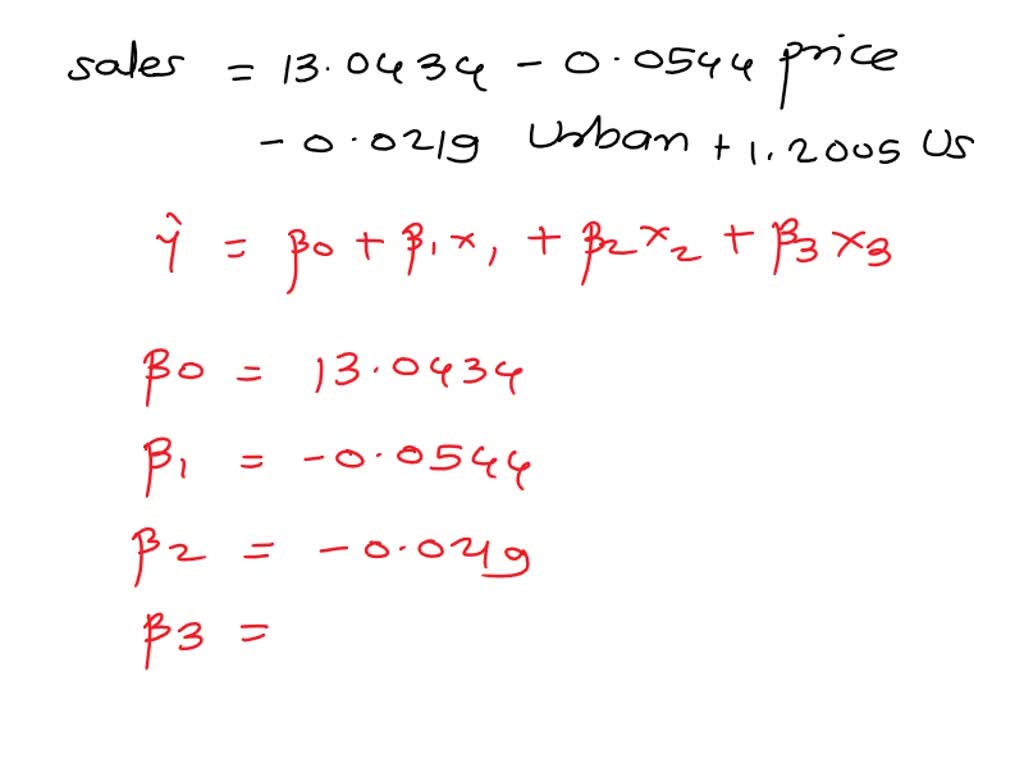 sales = 13.0434 - 0.0544 price
- 0.0219 Urban + 1.2005 US
Ŷ = β0 + β1x1 + β2x2 + β3x3
β0 = 13.0434
β1 = -0.0544
β2 = -0.0219
β3 =